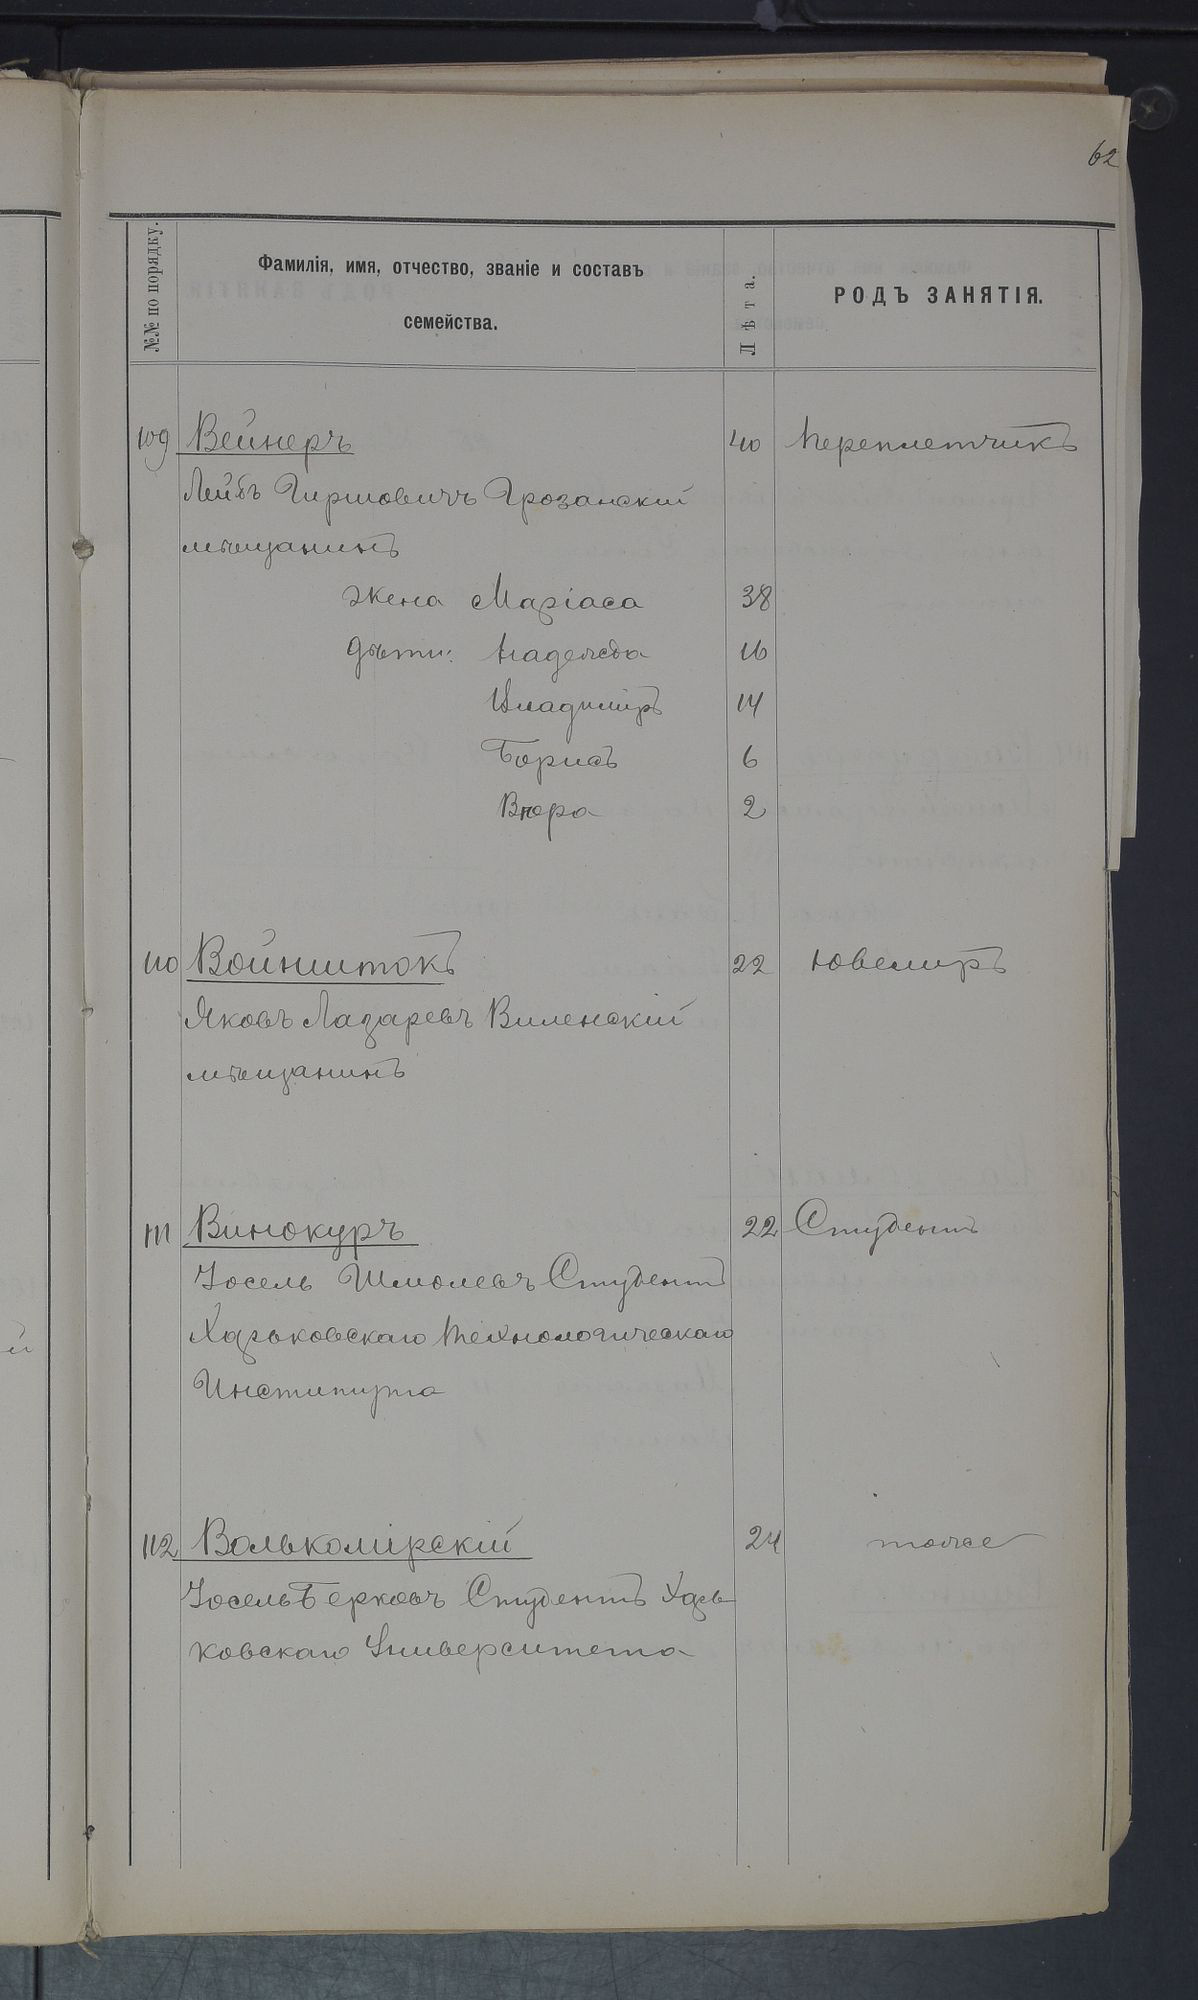 62
№№ по порядку.
Фамилія, имя, отчество, званіе и составъ
семейства.
Лѣта.
РОДЪ ЗАНЯТІЯ.
109 Вейнеръ 40 Переплетчикъ
Лейбъ Гиршовичъ Грозанскій
мѣщанинъ
жена Маріаса 38
дѣти: Надежда 16
Владиміръ 14
Борисъ 6
Вѣра 2
110 Войништокъ 22 Ювелиръ
Яковъ Лазаревъ Виленскій
мѣщанинъ
111 Винокуръ 22 Студентъ
Іосель Шмолевъ Студентъ
Харьковскаго Технологическаго
Института
112 Волькомірскій 24 тоже
Іосель Берковъ Студентъ Харь
ковскаго Университета